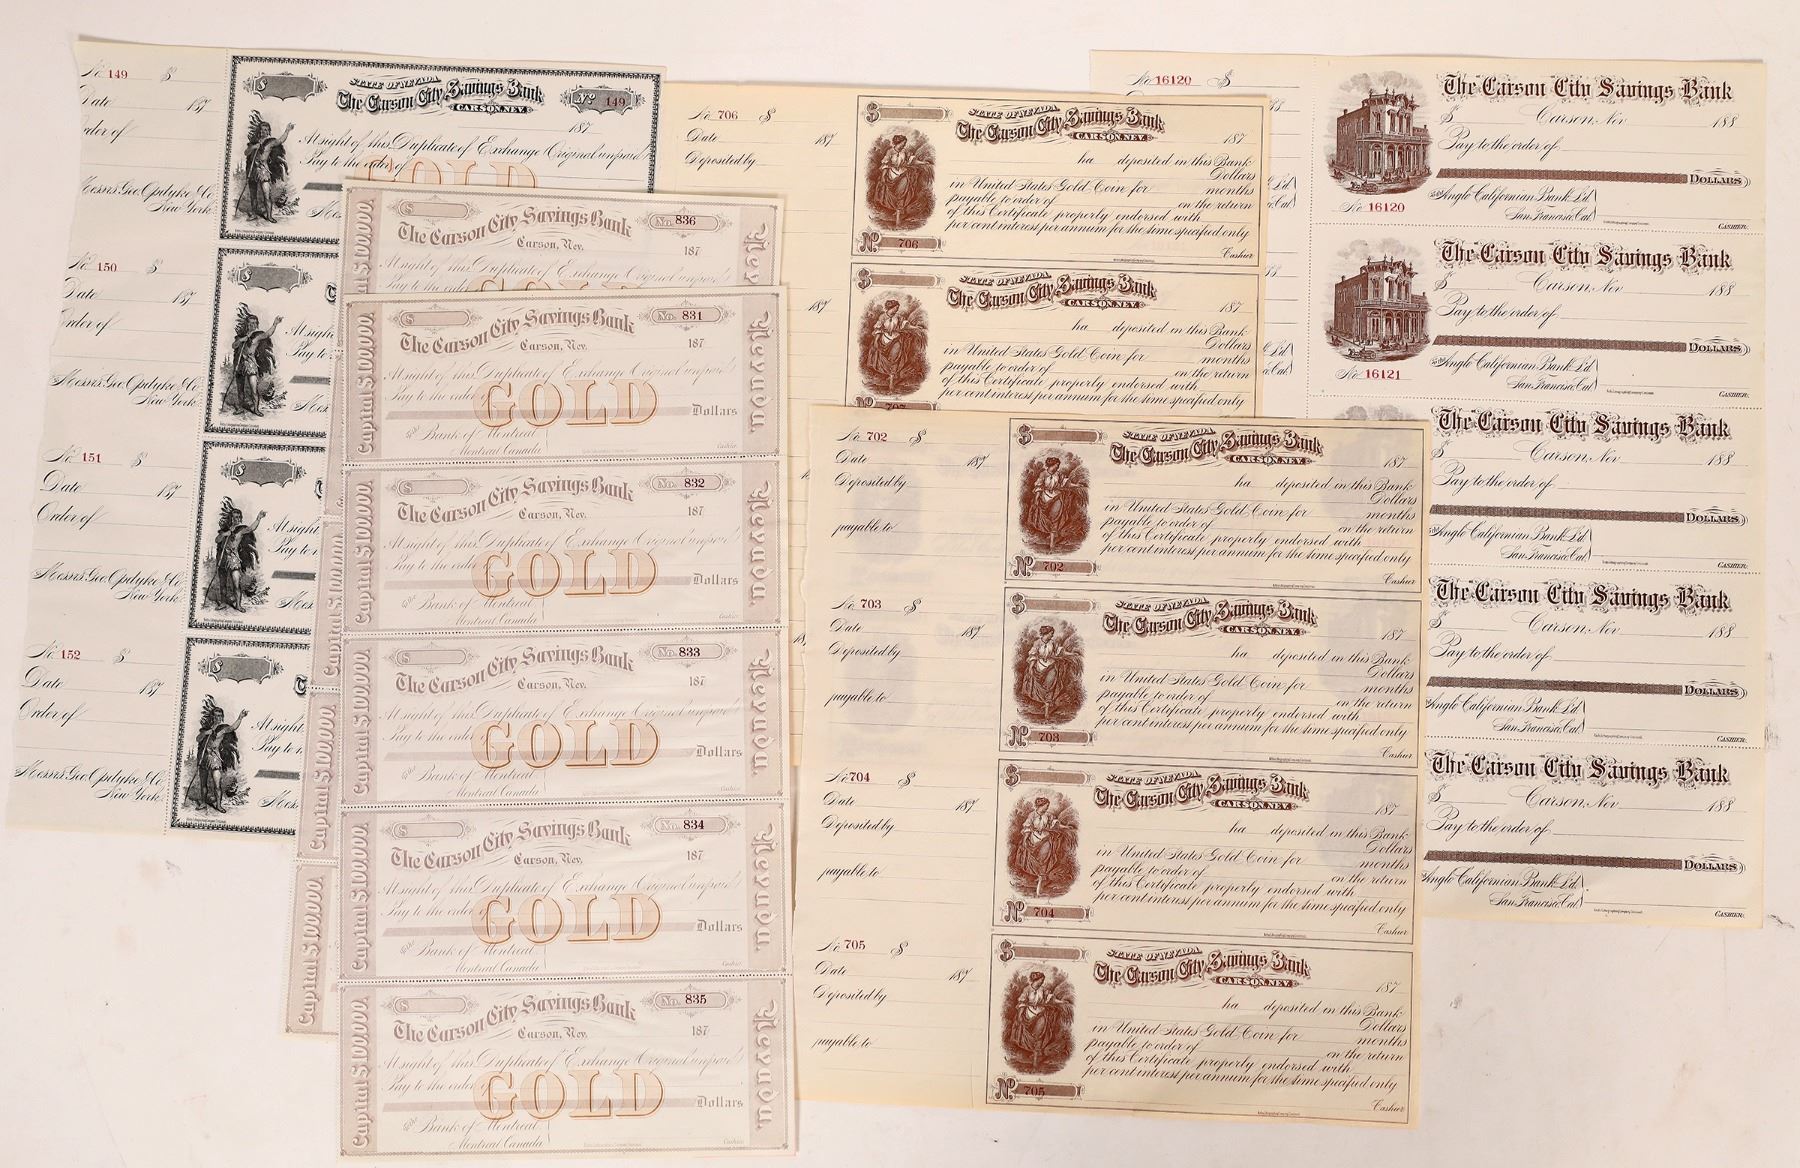 No 149 $
Date 187
Order of
Messrs. Geo. Opdyke & Co.
New York
$
STATE OF NEVADA
The Carson City Savings Bank
CARSON, NEV.
No 149
187
At sight of this Duplicate of Exchange Original unpaid
Pay to the order of
GOLD
No 150 $
Date 187
Order of
Messrs. Geo. Opdyke & Co.
New York
$
At sight
No 151 $
Date 187
Order of
Messrs. Geo. Opdyke & Co.
New York
$
At sight
No 152 $
Date 187
Order of
Messrs. Geo. Opdyke & Co.
New York
$
At sight
Capital $100,000.
$
The Carson City Savings Bank
Carson, Nev.
No. 836
187
At sight of this Duplicate of Exchange Original unpaid
Pay to the order
Capital $100,000.
$
The Carson City Savings Bank
Carson, Nev.
No. 831
187
At sight of this Duplicate of Exchange Original unpaid
Pay to the order of
GOLD
Dollars
To the Bank of Montreal
Montreal Canada
Cashier
Nevada.
Capital $100,000.
$
The Carson City Savings Bank
Carson, Nev.
No. 832
187
At sight of this Duplicate of Exchange Original unpaid
Pay to the order of
GOLD
Dollars
To the Bank of Montreal
Montreal Canada
Cashier
Nevada.
Capital $100,000.
$
The Carson City Savings Bank
Carson, Nev.
No. 833
187
At sight of this Duplicate of Exchange Original unpaid
Pay to the order of
GOLD
Dollars
To the Bank of Montreal
Montreal Canada
Cashier
Nevada.
Capital $100,000.
$
The Carson City Savings Bank
Carson, Nev.
No. 834
187
At sight of this Duplicate of Exchange Original unpaid
Pay to the order of
GOLD
Dollars
To the Bank of Montreal
Montreal Canada
Cashier
Nevada.
Capital $100,000.
$
The Carson City Savings Bank
Carson, Nev.
No. 835
187
At sight of this Duplicate of Exchange Original unpaid
Pay to the order of
GOLD
Dollars
To the Bank of Montreal
Montreal Canada
Cashier
Nevada.
Capital $100,000.
Capital $100,000.
Capital $100,000.
No 706 $
Date 187
Deposited by
$
STATE OF NEVADA.
The Carson City Savings Bank
CARSON, NEV.
187
ha deposited in this Bank
Dollars
in United States Gold Coin for months
payable to order of on the return
of this Certificate properly endorsed with
per cent interest per annum for the time specified only
No 706
Cashier
187
$
STATE OF NEVADA.
The Carson City Savings Bank
CARSON, NEV.
187
ha deposited in this Bank
Dollars
in United States Gold Coin for months
payable to order of on the return
of this Certificate properly endorsed with
per cent interest per annum for the time specified only
No 707
No 702 $
Date 187
Deposited by
payable to
$
STATE OF NEVADA.
The Carson City Savings Bank
CARSON, NEV.
187
ha deposited in this Bank
Dollars
in United States Gold Coin for months
payable to order of on the return
of this Certificate properly endorsed with
per cent interest per annum for the time specified only
No 702
Cashier
No 703 $
Date 187
Deposited by
payable to
$
STATE OF NEVADA.
The Carson City Savings Bank
CARSON, NEV.
187
ha deposited in this Bank
Dollars
in United States Gold Coin for months
payable to order of on the return
of this Certificate properly endorsed with
per cent interest per annum for the time specified only
No 703
Cashier
No 704 $
Date 187
Deposited by
payable to
$
STATE OF NEVADA.
The Carson City Savings Bank
CARSON, NEV.
187
ha deposited in this Bank
Dollars
in United States Gold Coin for months
payable to order of on the return
of this Certificate properly endorsed with
per cent interest per annum for the time specified only
No 704
Cashier
No 705 $
Date 187
Deposited by
payable to
$
STATE OF NEVADA.
The Carson City Savings Bank
CARSON, NEV.
187
ha deposited in this Bank
Dollars
in United States Gold Coin for months
payable to order of on the return
of this Certificate properly endorsed with
per cent interest per annum for the time specified only
No 705
Cashier
No 16120 $
The Carson City Savings Bank
$ Carson, Nev 188
Pay to the order of
DOLLARS
To the Anglo Californian Bank Ld
San Francisco Cal
No 16120
CASHIER.
The Carson City Savings Bank
$ Carson, Nev 188
Pay to the order of
DOLLARS
To the Anglo Californian Bank Ld
San Francisco Cal
No 16121
CASHIER.
The Carson City Savings Bank
$ Carson, Nev 188
Pay to the order of
DOLLARS
To the Anglo Californian Bank Ld
San Francisco Cal
CASHIER.
The Carson City Savings Bank
$ Carson, Nev 188
Pay to the order of
DOLLARS
Anglo Californian Bank Ld
San Francisco Cal
CASHIER.
The Carson City Savings Bank
$ Carson, Nev 188
Pay to the order of
DOLLARS
Anglo Californian Bank Ld
San Francisco Cal
CASHIER.